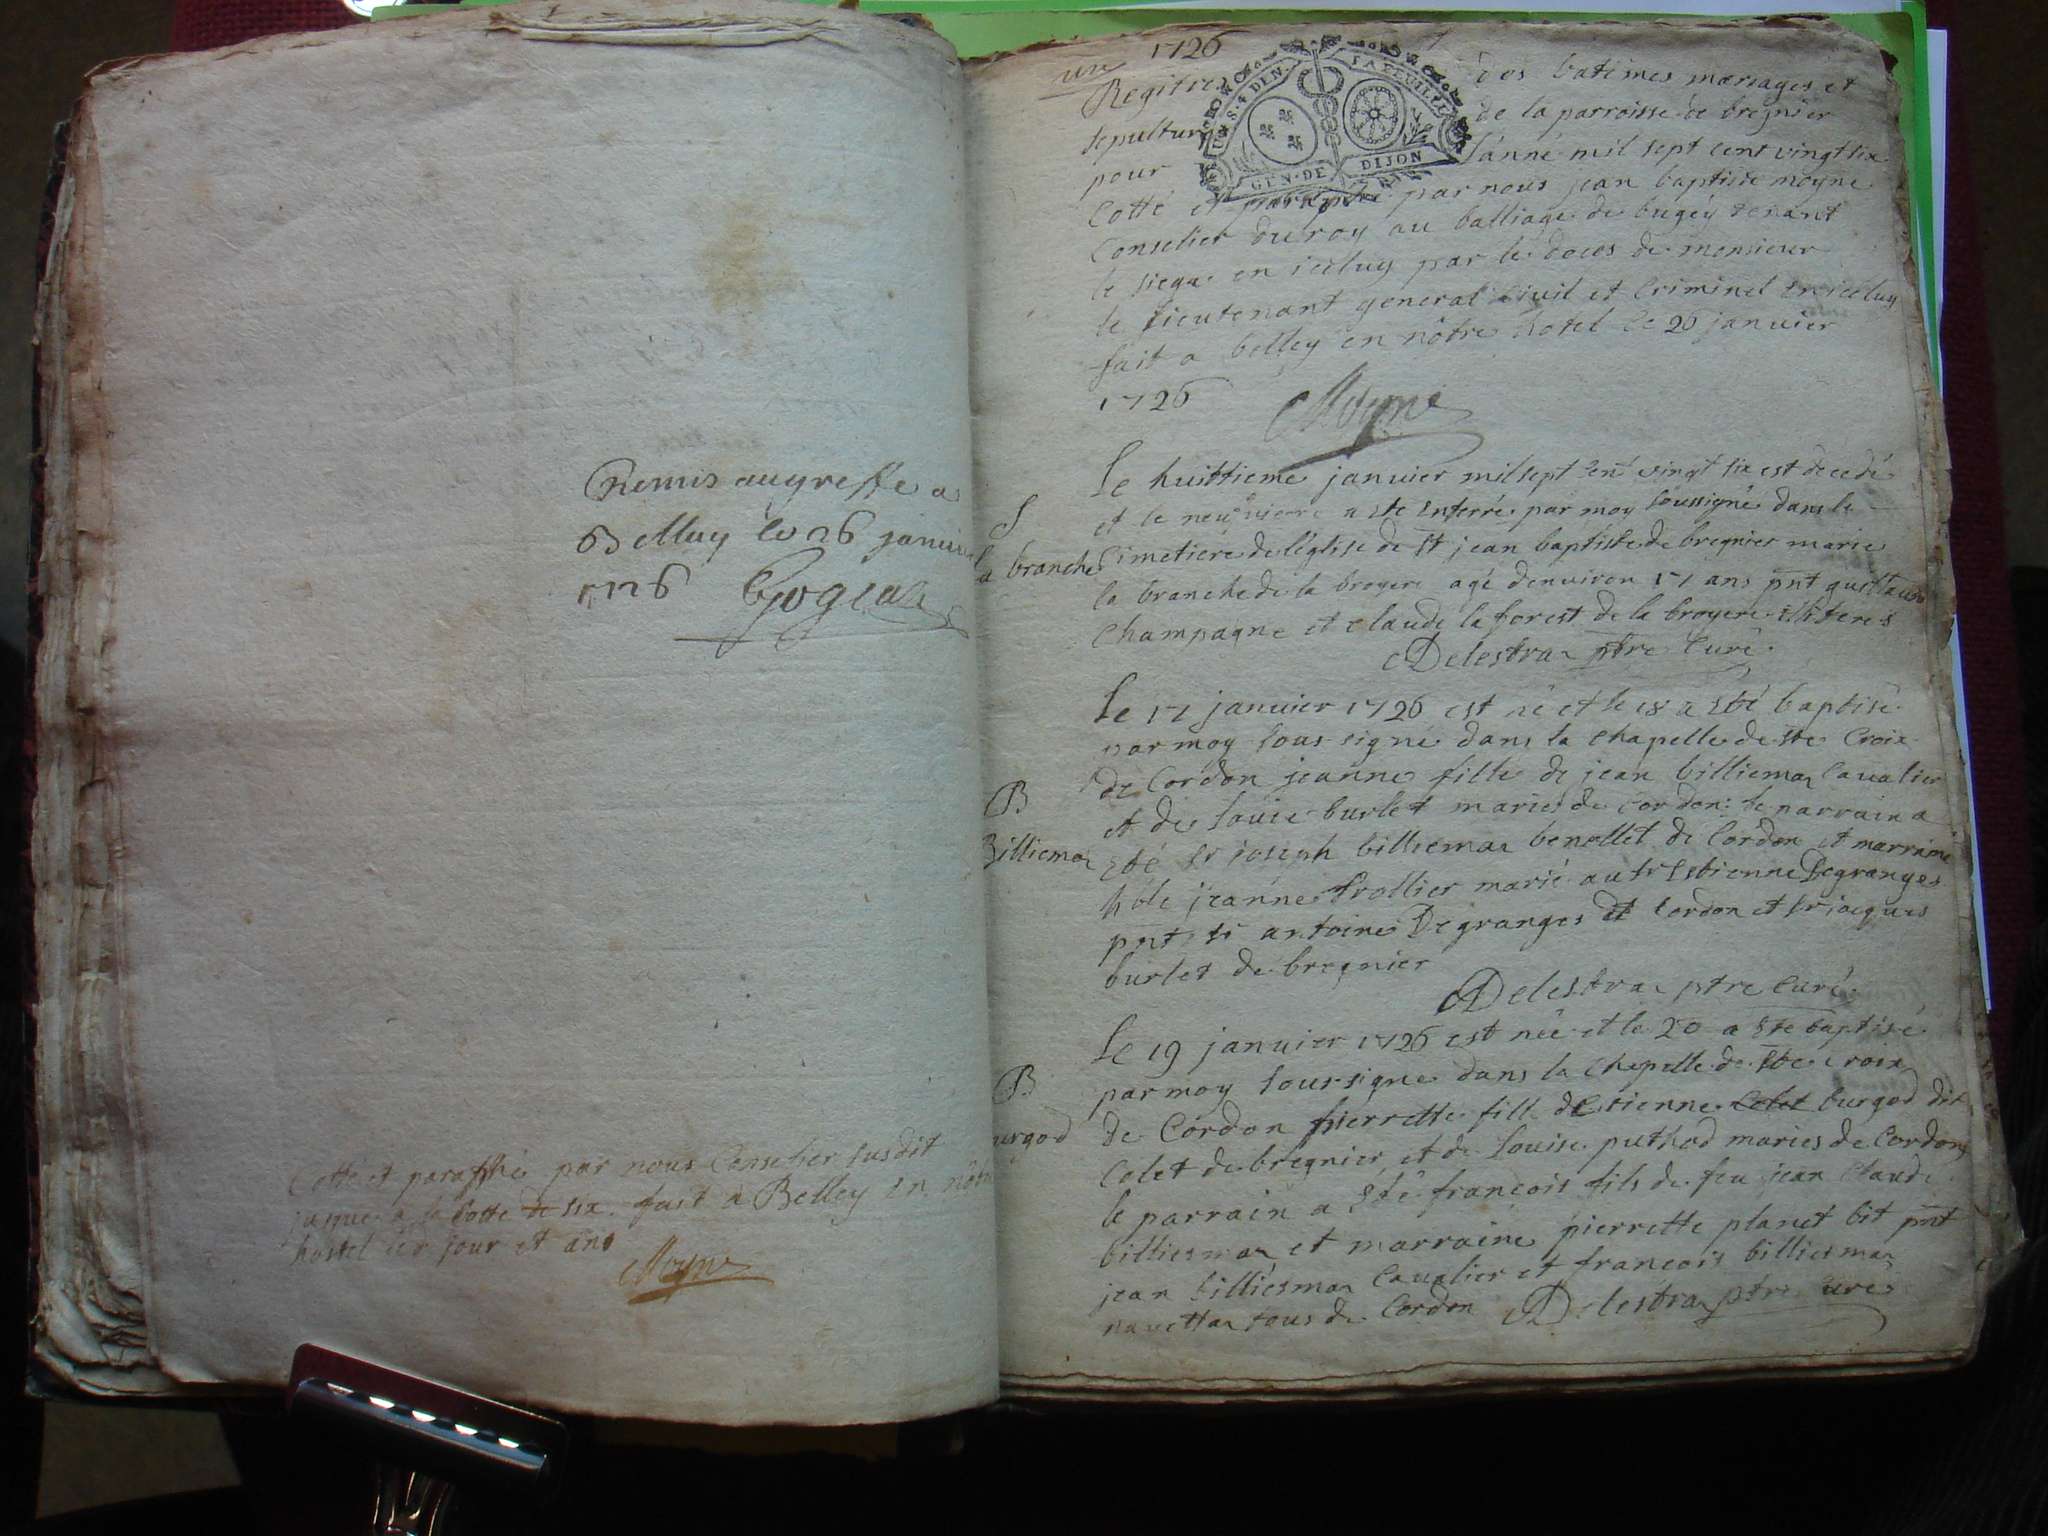 Remis au greffe a
Belley le 26 janvier
1726
Cotté et paraphé par nous Conselier susdit
jusque a la Cotte de six. fait a Belley en nôtre
hostel les jour et an
Moyne
une 1726
Registre des batimes mariages et
sepultur de la parroisse de bregnier
pour l'anné mil sept cent vingt six
Cotté et paraphé par nous jean baptiste moyne
Conselier du roy au balliage de bugey tenant
le siege en iceluy par le deces de monsieur
le lieutenant general Civil et Criminel en iceluy
fait a belley en nôtre hotel le 26 janvier
1726
Moyne
GEN. DE DIJON
S
la branche
Le huittieme janvier mil sept cent vingt six est decedé
et le neuvieme a ete enterré par moy soussigné dans le
Cimetiere de l'eglise de st jean baptiste de bregnier marie
la branche de la broyere agé denviron 17 ans pnt guillaume
Champagne et claude la forest de la broyere illiteres
Delestra ptre Curé.
B
Billiema
Le 17 janvier 1726 est né et le 18 a eté baptisé
par moy sous signé dans la chapelle de ste Croix
de Cordon jeanne fille de jean billiemaz Cavalier
et de louise burlet mariés de Cordon: le parrain a
eté sr joseph billiemaz benollet de Cordon et marraine
jeanne trollier marié au sr Estienne Degranges
pnt sr antoine Degranges de Cordon et sr jacques
burlet de bregnier
Delestra ptre Curé.
B
urgod
Le 19 janvier 1726 est née et le 20 a ete baptisé
par moy soussigne dans la chapelle de ste croix
de Cordon pierrette fille destienne Colet burgod dit
Colet de bregnier et de louise puthod mariés de Cordon
le parrain a eté françois fils de feu jean Claude
billiesmaz et marraine pierrette planet pnt
jean billiesmaz Cavalier et françois billiesmaz
tous de Cordon Delestra ptre curé